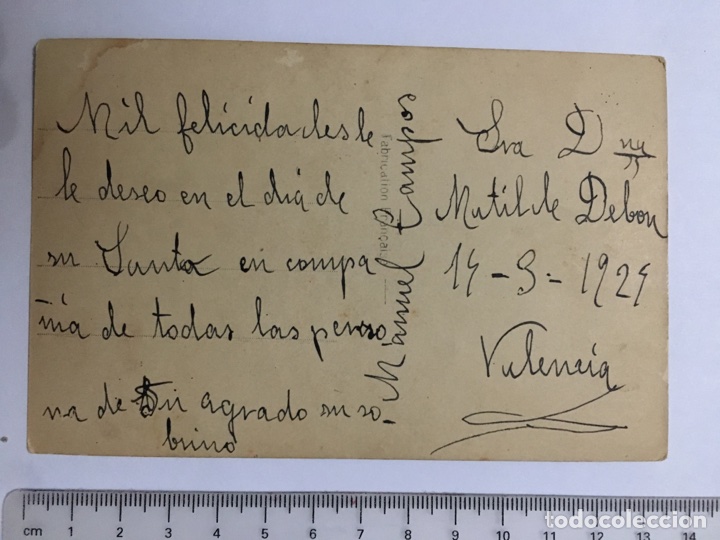 Mil felicidades le
le deseo en el dia de
su Santa en compa
ñia de todas las perso
na de Su agrado su so-
brino
Manuel Campos
Fabrication Française
Sra Dña
Matilde Debon
14-3-1924
Valencia
cm 1 2 3 4 5 6 7 8 9 10 11 12 13 14
todocoleccion.net